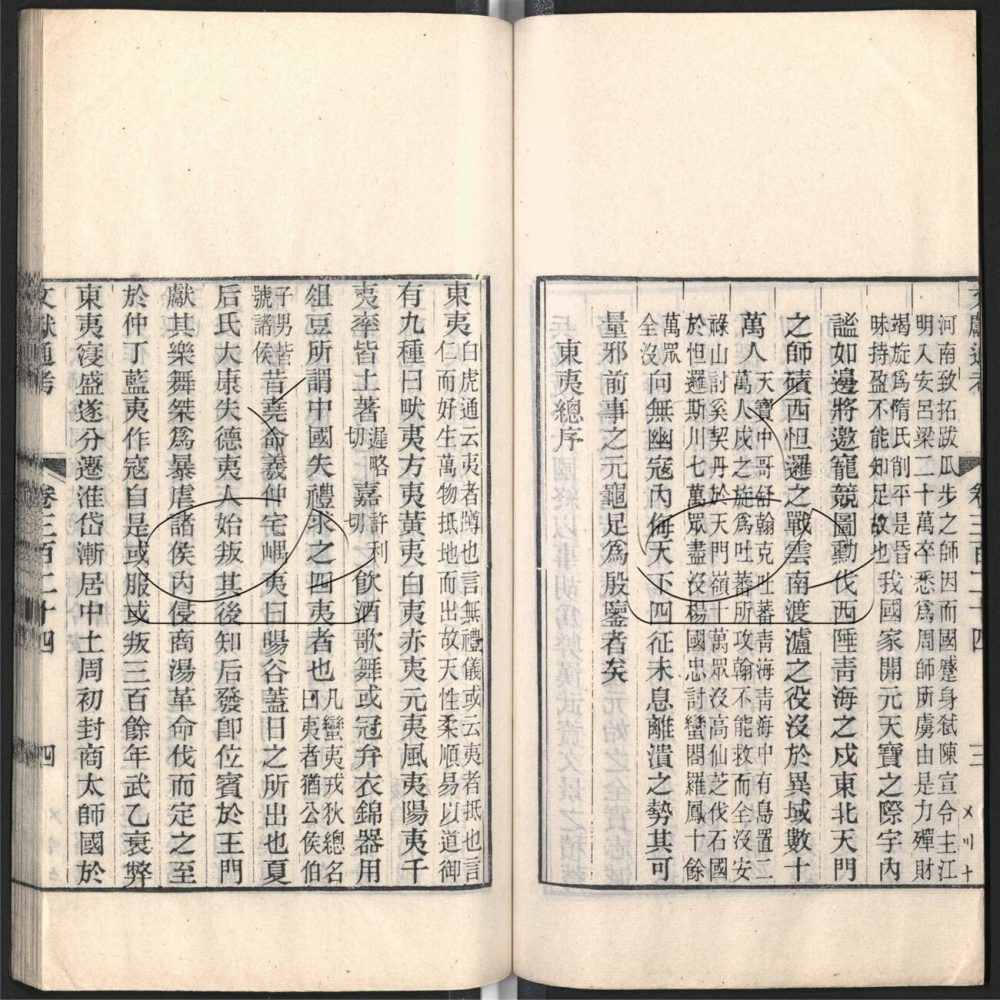 河南致拓跋瓜步之師因而國蹙身弒陳宣令主江
明入安呂梁二十萬卒悉爲周師所虜由是力殫財
竭旋爲惰氏削平是昏
昧持盈不能知足故也我國家開元天寶之際宇內
謐如邊將邀寵競圖勳伐西陲靑海之戍東北天門
之師磧西怛邏之戰雲南渡瀘之役沒於異域數十
萬人天寶中哥舒翰克吐蕃靑海靑海中有島置二
萬人戍之旋爲吐蕃所攻翰不能救而全沒安
祿山討奚契丹於天門嶺十萬眾沒高仙芝伐石國
於怛邏斯川七萬眾盡沒楊國忠討蠻閤羅鳳十餘
萬眾
全沒向無幽寇內侮天下四征未息離潰之勢其可
量邪前事之元龜足爲殷鑒者矣
東夷總序
東夷白虎通云夷者蹲也言無禮儀或云夷者抵也言
仁而好生萬物抵地而出故天性柔順易以道御
有九種曰畎夷方夷黃夷白夷赤夷元夷風夷陽夷千
夷率皆土著遲略
切嘉許利
切飮酒歌舞或冠弁衣錦器用
俎豆所謂中國失禮求之四夷者也凡蠻夷戎狄總名
曰夷者猶公侯伯
子男皆
號諸侯昔堯命羲仲宅嵎夷曰暘谷蓋日之所出也夏
后氏大康失德夷人始叛其後知后發卽位賓於王門
獻其樂舞桀爲暴虐諸侯內侵商湯革命伐而定之至
於仲丁藍夷作寇自是或服或叛三百餘年武乙衰弊
東夷寖盛遂分遷淮岱漸居中土周初封商太師國於
文獻通考 卷三百二十四 四